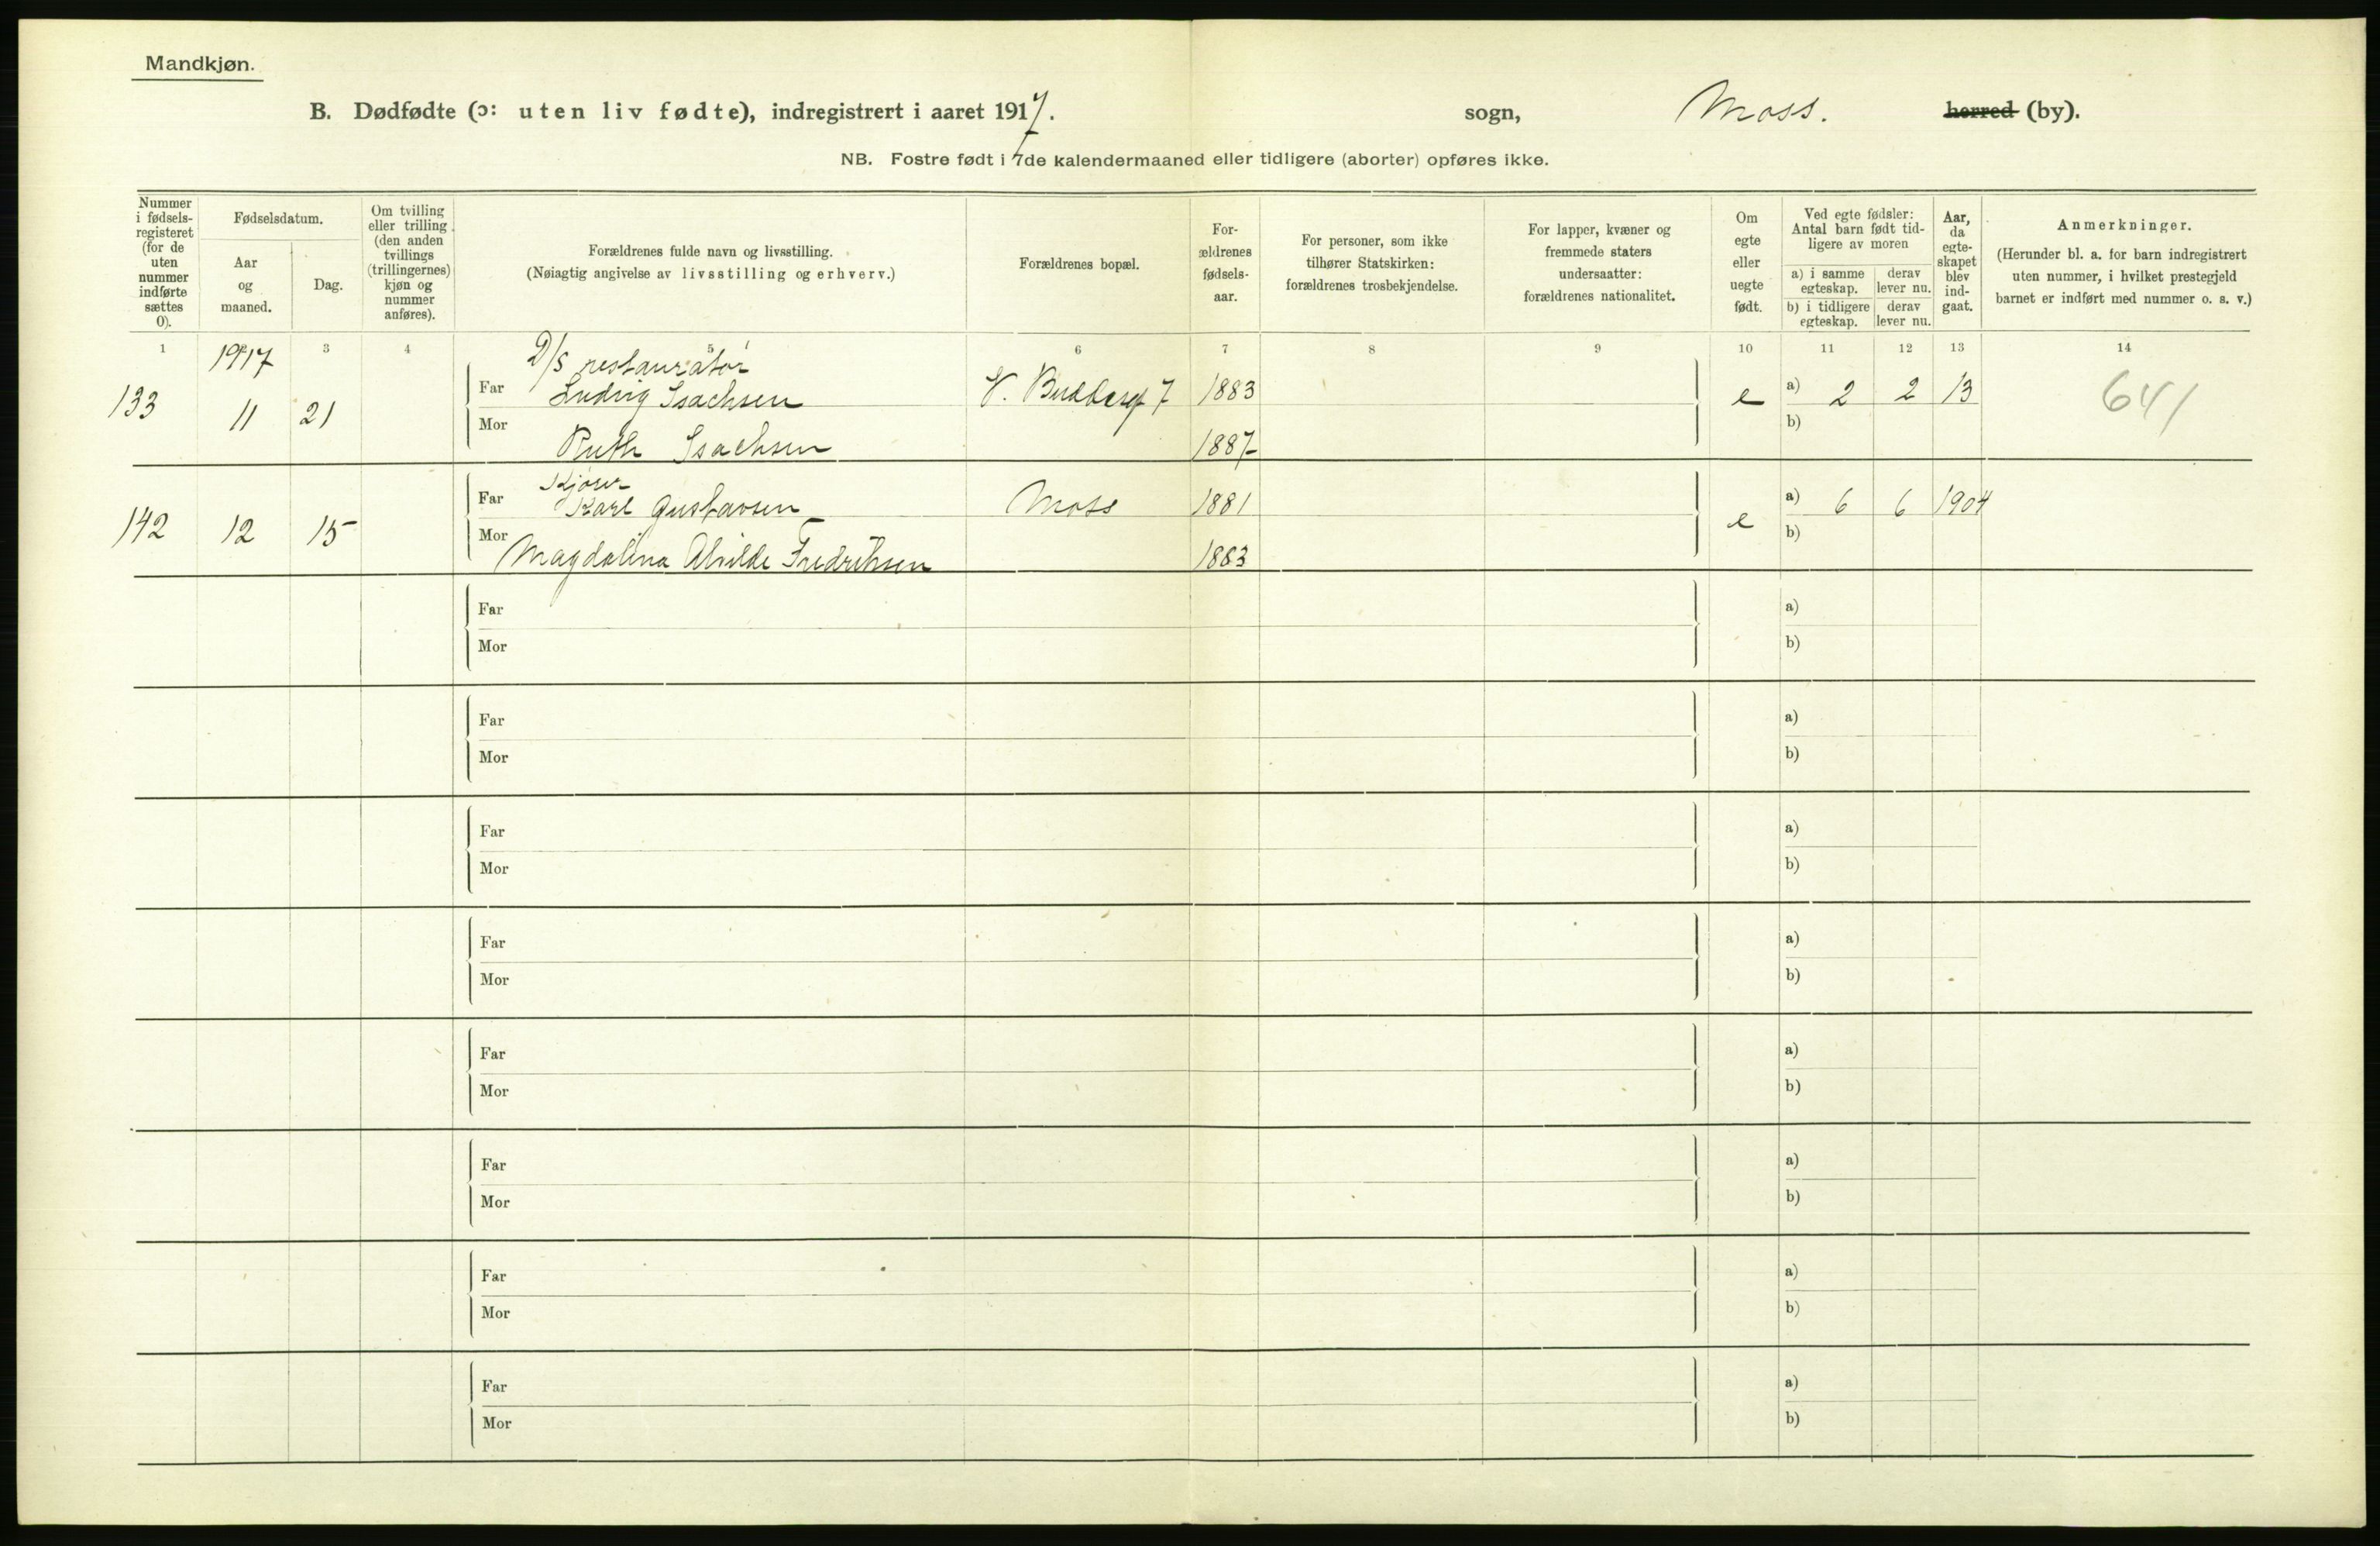 Mandkjøn.
B. Dødfødte (ɔ: uten liv fødte), indregistrert i aaret 1917. sogn, Moss. herred (by).
NB. Fostre født i 7de kalendermaaned eller tidligere (aborter) opføres ikke.
Nummer i fødsels-registeret (for de uten nummer indførte sættes 0).
Fødselsdatum.
Aar og maaned.
Dag.
Om tvilling eller trilling (den anden tvillings (trillingernes) kjøn og nummer anføres).
Forældrenes fulde navn og livsstilling.
(Nøiagtig angivelse av livsstilling og erhverv.)
Forældrenes bopæl.
For-ældrenes fødsels-aar.
For personer, som ikke tilhører Statskirken: forældrenes trosbekjendelse.
For lapper, kvæner og fremmede staters undersaatter: forældrenes nationalitet.
Om egte eller uegte født.
Ved egte fødsler: Antal barn født tid-ligere av moren
a) i samme egteskap.
derav lever nu.
b) i tidligere egteskap.
derav lever nu.
Aar, da egte-skapet blev ind-gaat.
Anmerkninger.
(Herunder bl. a. for barn indregistrert uten nummer, i hvilket prestegjeld barnet er indført med nummer o. s. v.)
1 2 3 4 5 6 7 8 9 10 11 12 13 14
1917
D/S restauratør
133 11 21 Far Ludvig Isachsen V. 7 1883 e a) 2 2 13 641
Mor Ruth Isachsen 1887 b)
Kjører
142 12 15 Far Karl Gustavsen Moss 1881 e a) 6 6 1904
Mor Magdalina Alvilde Fredriksen 1883 b)
Far a)
Mor b)
Far a)
Mor b)
Far a)
Mor b)
Far a)
Mor b)
Far a)
Mor b)
Far a)
Mor b)
Far a)
Mor b)
Far a)
Mor b)